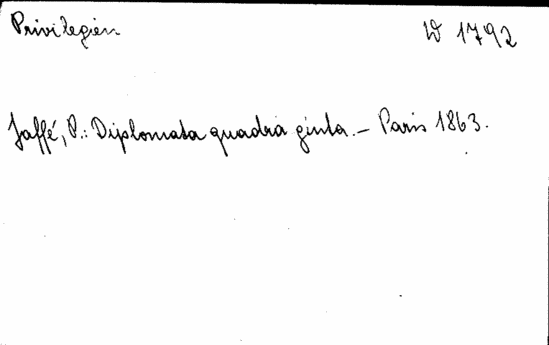 Privilegien W 1792
Jaffé, P.: Diplomata quadra ginta. – Paris 1863.